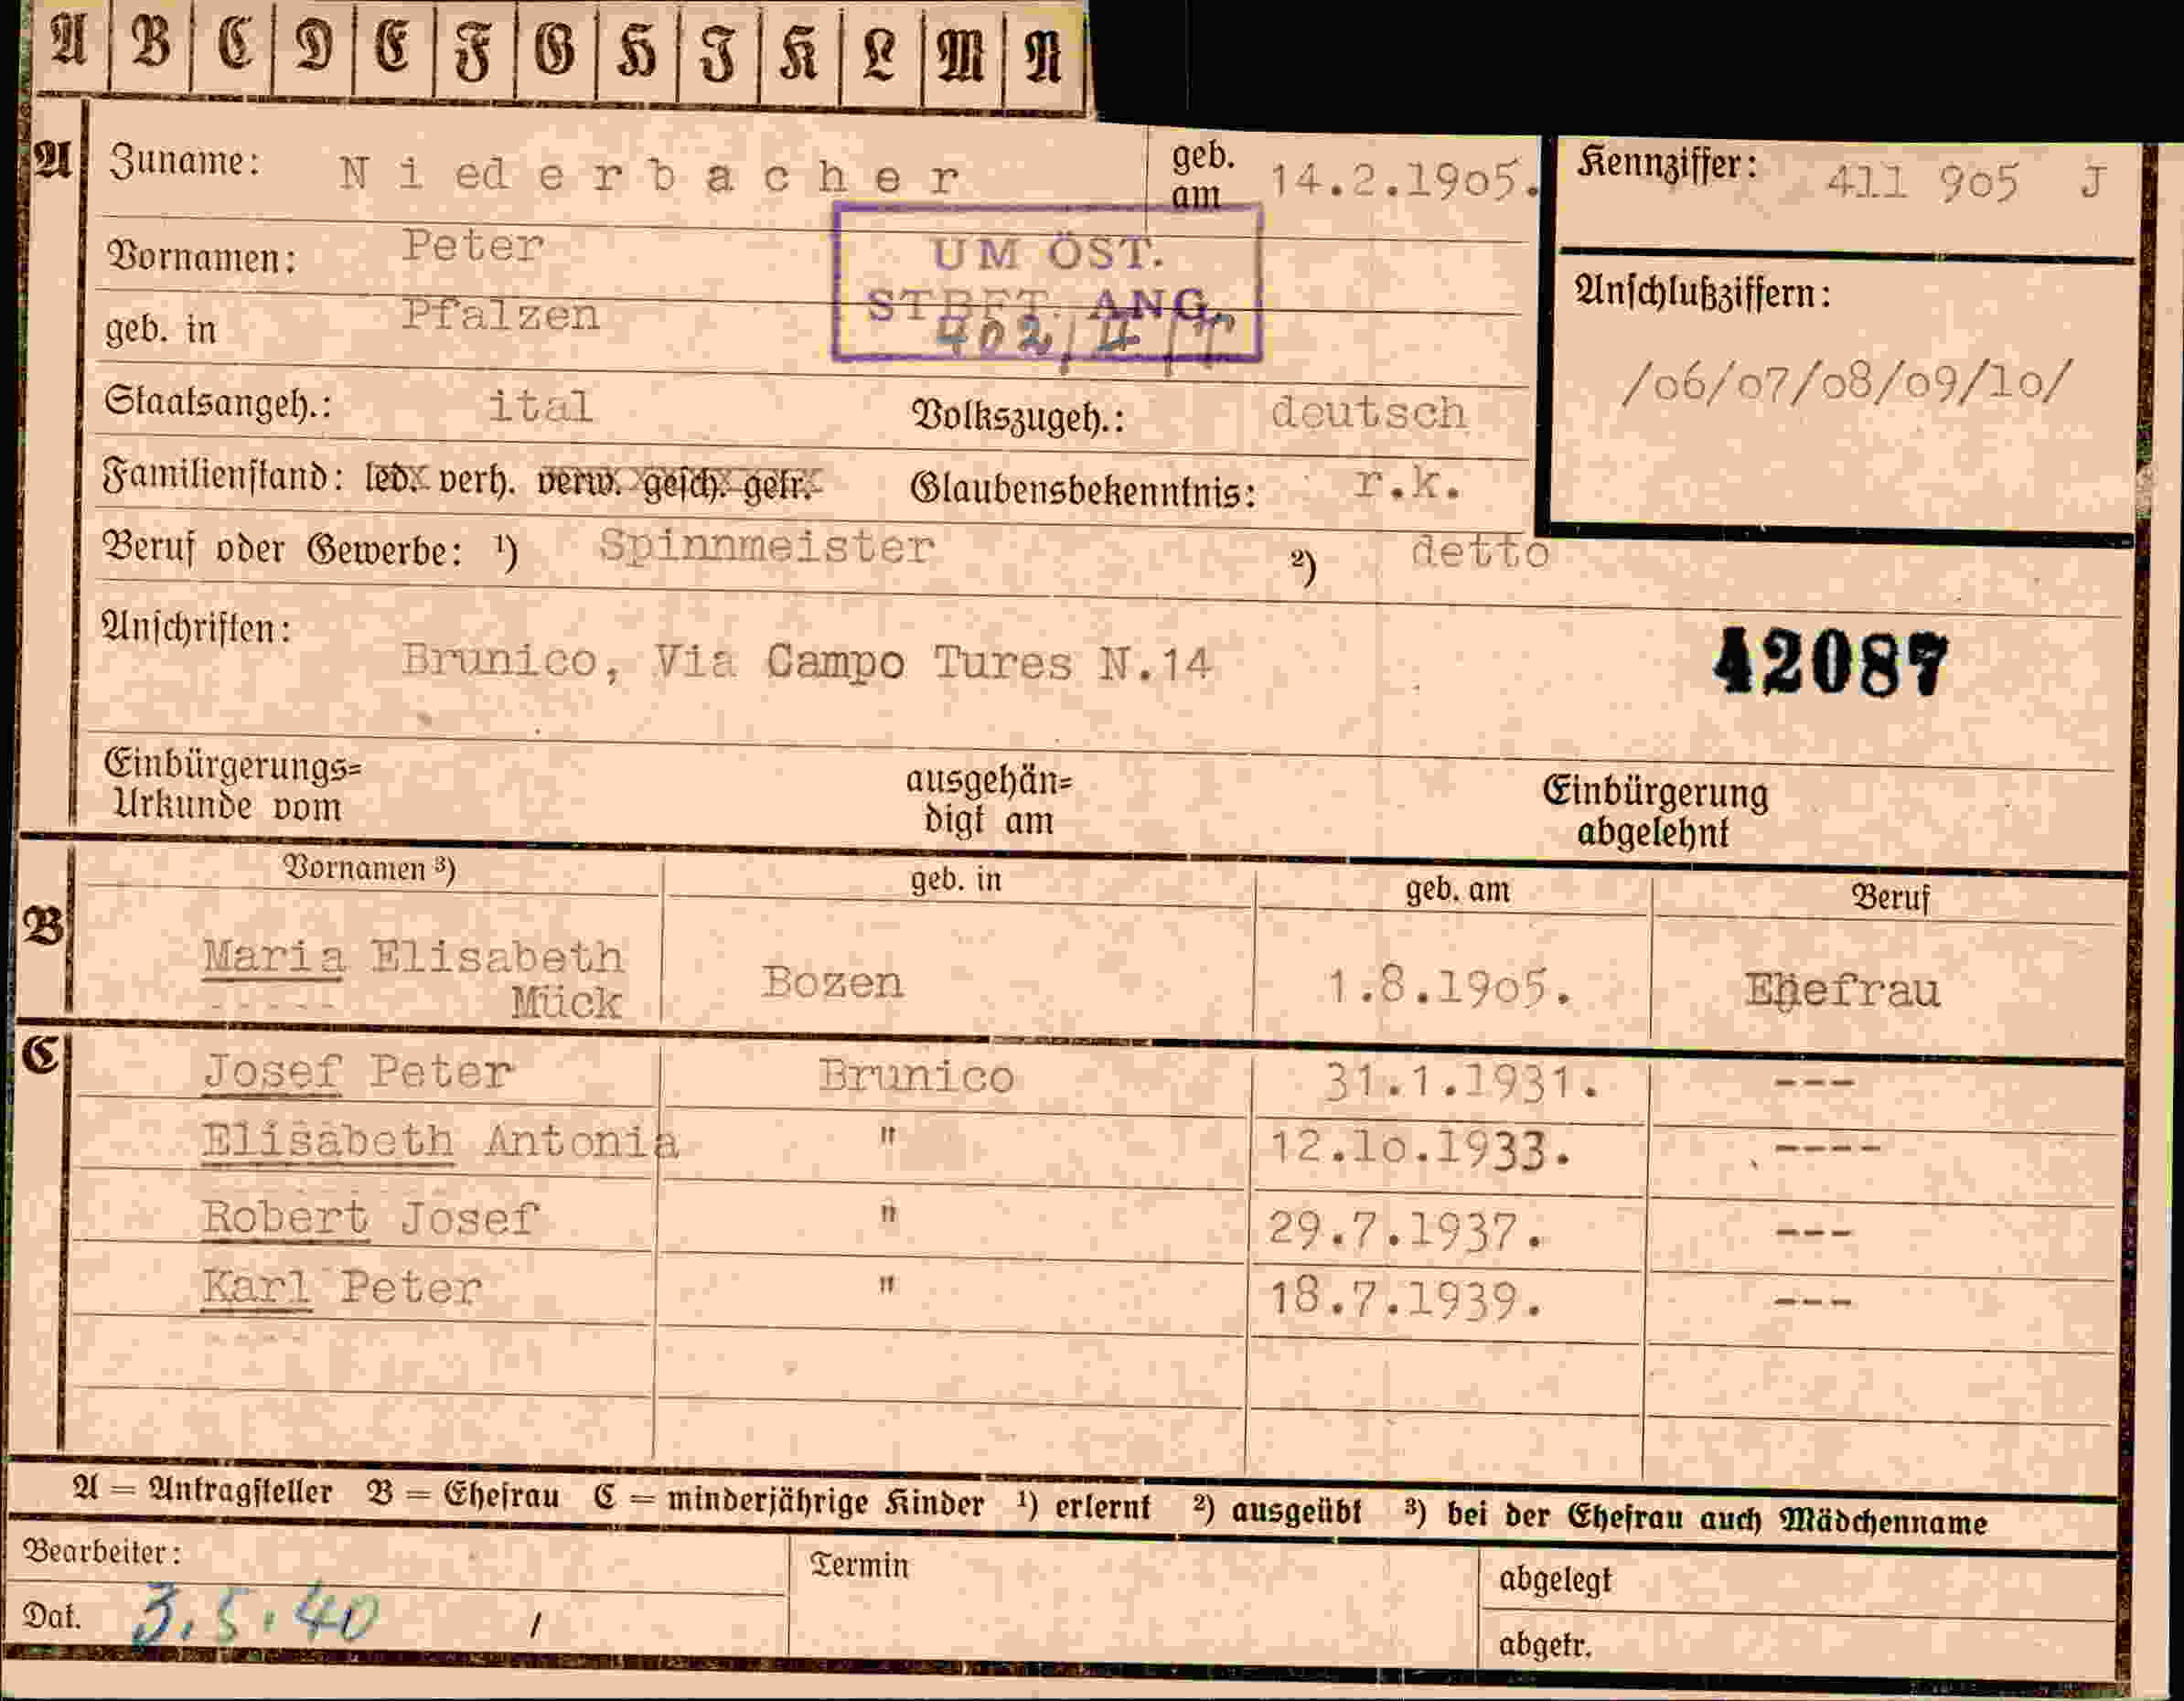 A B C D E F G H J K L M N
A Zuname: Niederbacher geb. am 14.2.1905. Kennziffer: 411 905 J
Vornamen: Peter
UM ÖST.
STBFT. ANG.
geb. in Pfalzen
Anschlußziffern:
/06/07/08/09/10/
Staatsangeh.: ital Volkszugeh.: deutsch
Familienstand: led. verh. verw. gesch. getr. Glaubensbekenntnis: r.k.
Beruf oder Gewerbe: ¹) Spinnmeister ²) detto
Anschriften: Brunico, Via Campo Tures N.14
42087
Einbürgerungs= ausgehän= Einbürgerung
Urkunde vom digt am abgelehnt
Vornamen ³) geb. in geb. am Beruf
B Maria Elisabeth
Mück Bozen 1.8.1905. Ehefrau
C Josef Peter Brunico 31.1.1931. ---
Elisabeth Antonia " 12.10.1933. ----
Robert Josef " 29.7.1937. ---
Karl Peter " 18.7.1939. ---
A = Antragsteller B = Ehefrau C = minderjährige Kinder ¹) erlernt ²) ausgeübt ³) bei der Ehefrau auch Mädchenname
Bearbeiter: Termin abgelegt
Dat. 3.5.40 / abgetr.